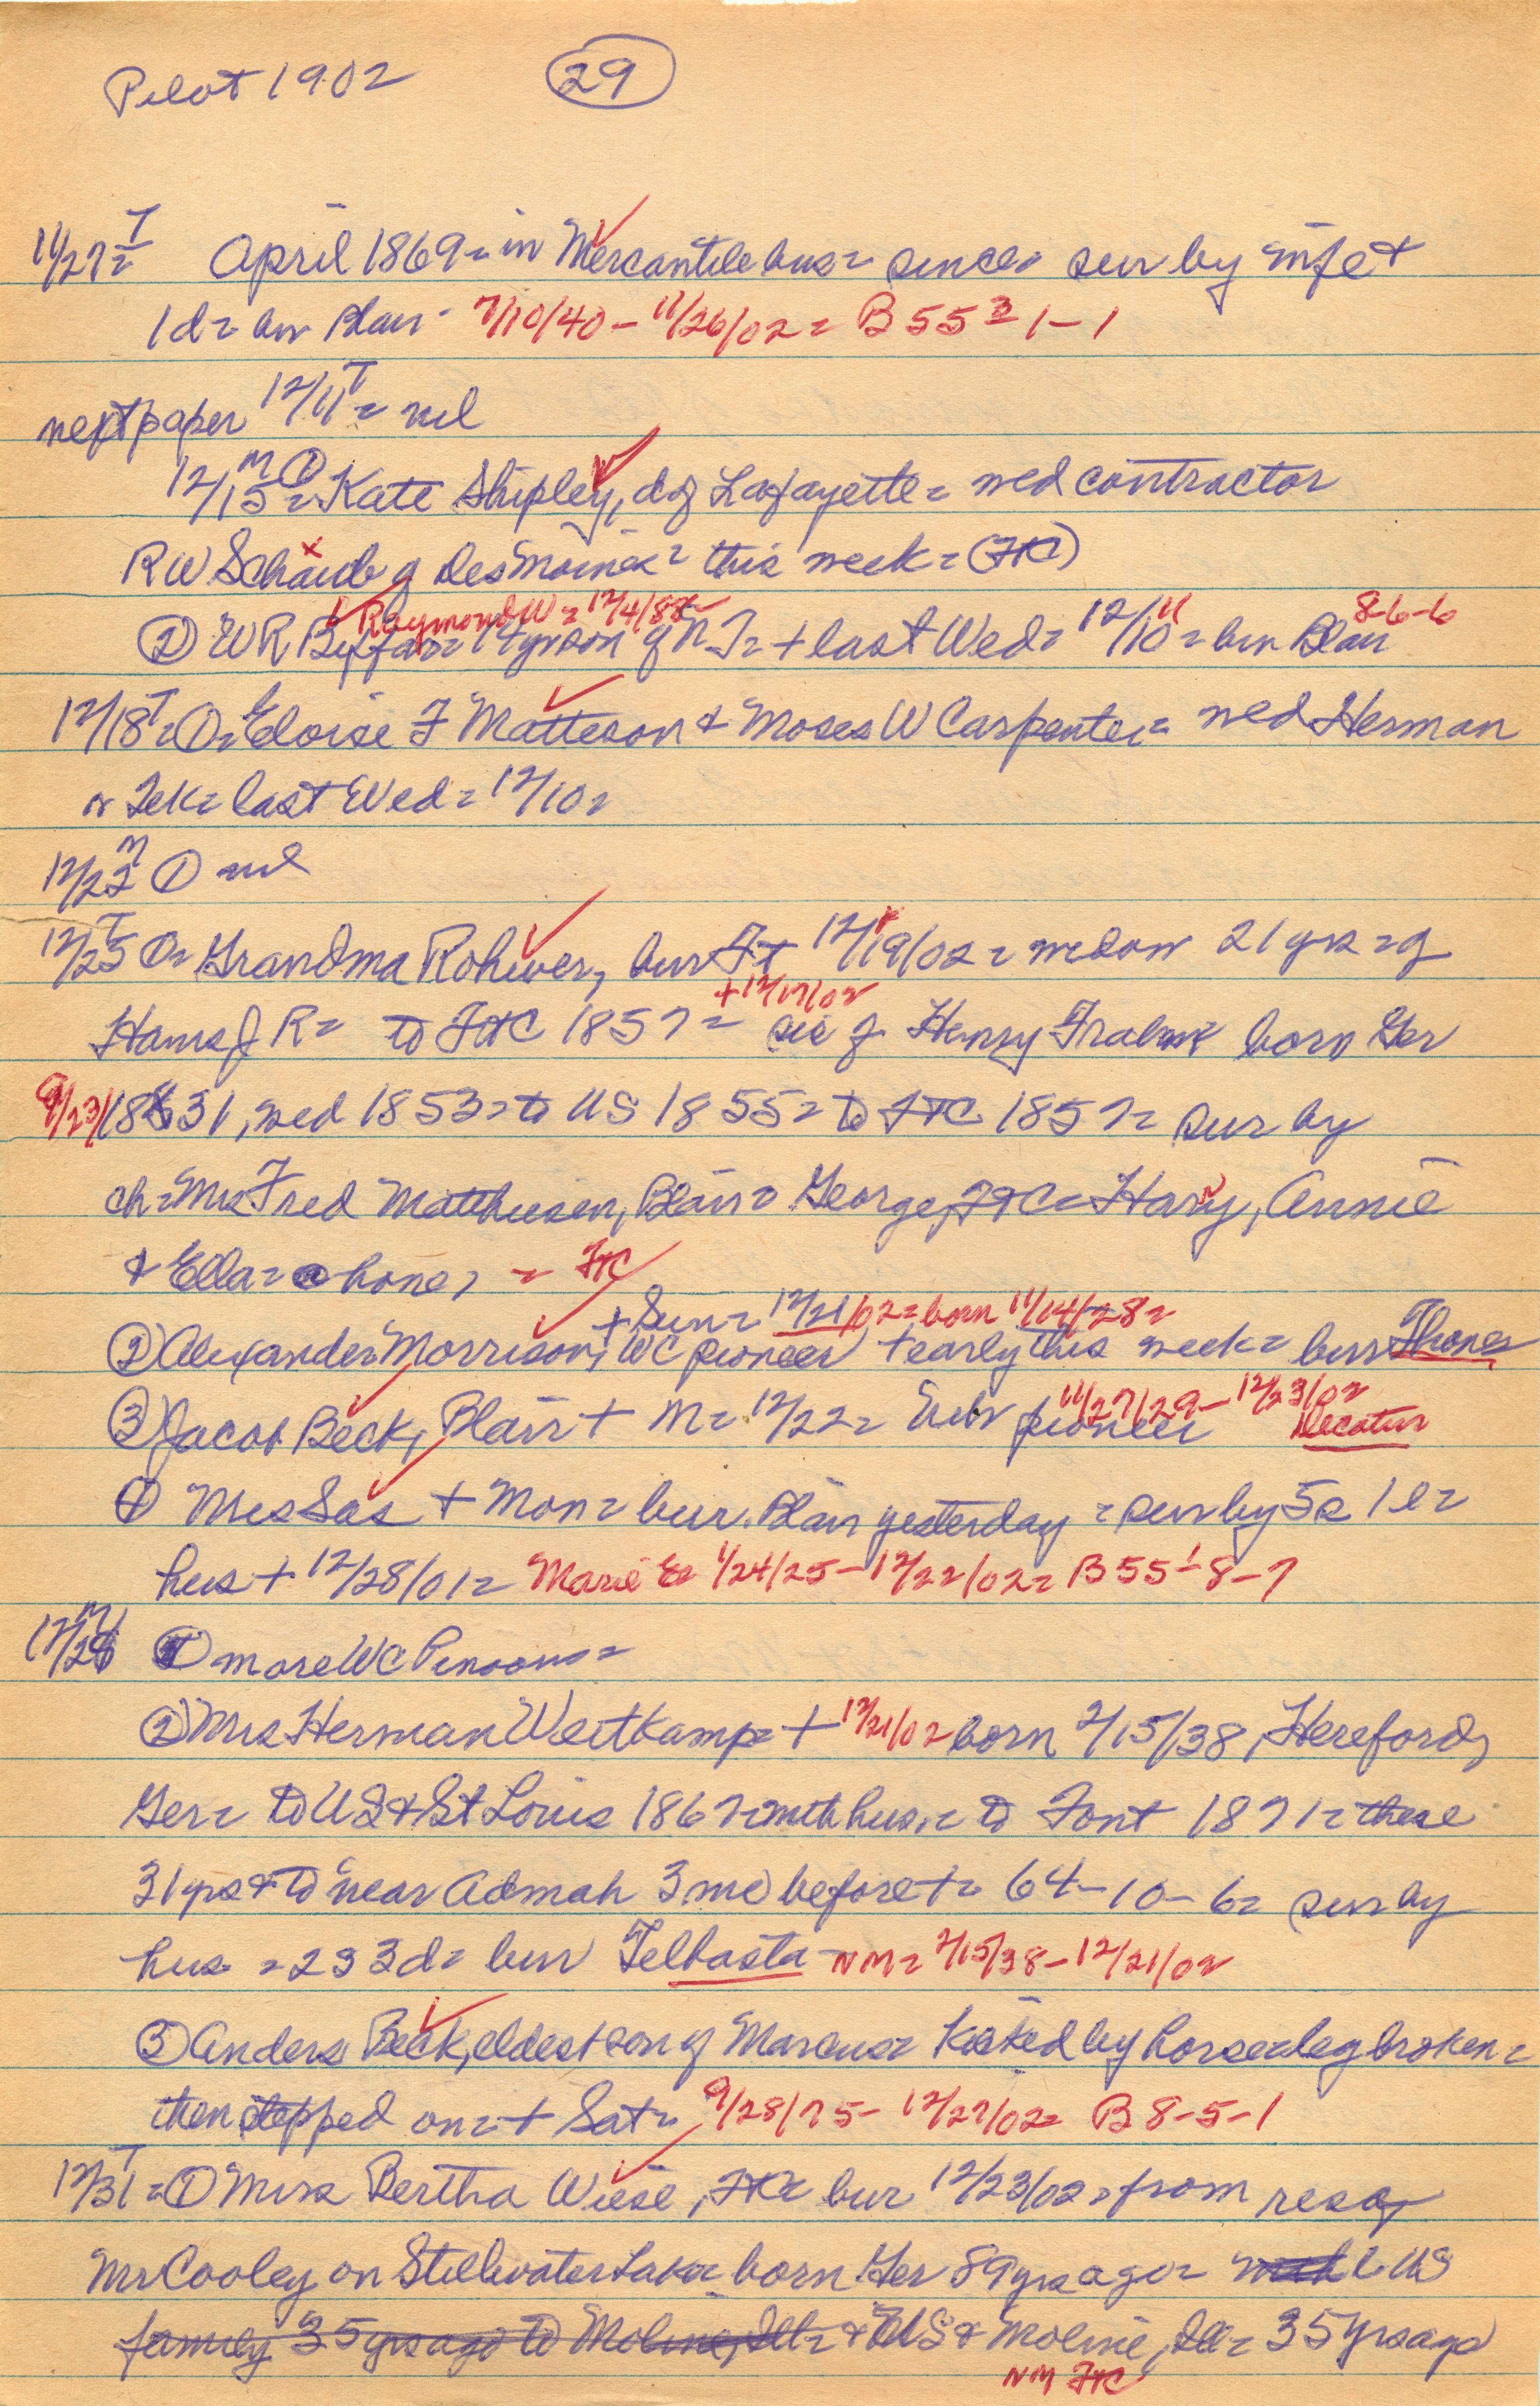 Pilot 1902 29
11/27 T = April 1869 = in Mercantile bus = since = sur by wife +
1d = bur Blair - 7/10/40 - 11/26/02 = B 55 = 1-1
next paper 12/11 T = nil
12/15 M = ① Kate Shipley, d of Lafayette = wed contractor
RW Schaub of Des Moines = this week = (FtC)
Raymond W = 12/4/88 8-6-6
② WR = 14 yr son of N.J. = + last Wed = 12/10 11 = bur Blair
12/18 T = ① = Eloise F Matteson & Moses W Carpenter = wed Herman
or Tek = last Wed = 12/10 =
12/22 M ① nil
12/25 T ① = Grandma Rohwer, bur Ft 12/19/02 = widow 21 yrs = of
+ 12/17/02
Hans J R = to FtC 1857 = sis of Henry Frahm born Ger
9/23/1831, wed 1853 = to US 1855 = to FtC 1857 = sur by
ch = Mrs Fred Matthiesen, Blair = George, FtC = Harry, Annie
& Ella = @ home, = FtC
+ Sun = 12/21/02 = born 11/14/28 =
② Alexander Morrison, WC pioneer + early this week = bur Thones
11/27/29 - 12/23/02
③ Jacob Beck, Blair + M = 12/22 = pioneer Decatur
④ Mrs Sas + Mon = bur. Blair yesterday = sur by 5s 1d =
hus + 12/28/01 = Marie E = 1/24/25 - 12/22/02 = B 55 - 8-7
12/28 M ① more WC =
② Mrs Herman Weitkamp = + 12/21/02 born 2/15/38, Hereford,
Ger = to US & St Louis 1867 = with hus. = to Font 1871 = there
31 yrs & to near Admah 3 mo before + = 64-10-6 = sur by
hus = 2s 3d = bur Telbasta - NM = 2/15/38 - 12/21/02
③ Anders Beck, eldest son of Marcus = kicked by horse = leg broken =
then stepped on = + Sat = 9/28/75 - 12/27/02 = B 8-5-1
12/31 T = ① Mrs Bertha Wiese, FtC = bur 12/23/02 = from res of
Mr Cooley on Stillwater Lake = born Ger 89 yrs ago = with to US
family 35 yrs ago to Moline, Ill = & US & Moline, Ill = 35 yrs ago
NM FtC